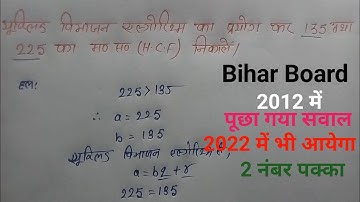 यूक्लिड विभाजन एल्गोरिथ्म का प्रयोग कर 135 तथा
225 का म० स० (H.C.F) निकालें।
हल:
225 > 135
∴ a = 225
b = 135
यूक्लिड विभाजन एल्गोरिथ्म से,
a = bq + r
225 = 135
Bihar Board
2012 में
पूछा गया सवाल
2022 में भी आयेगा
2 नंबर पक्का